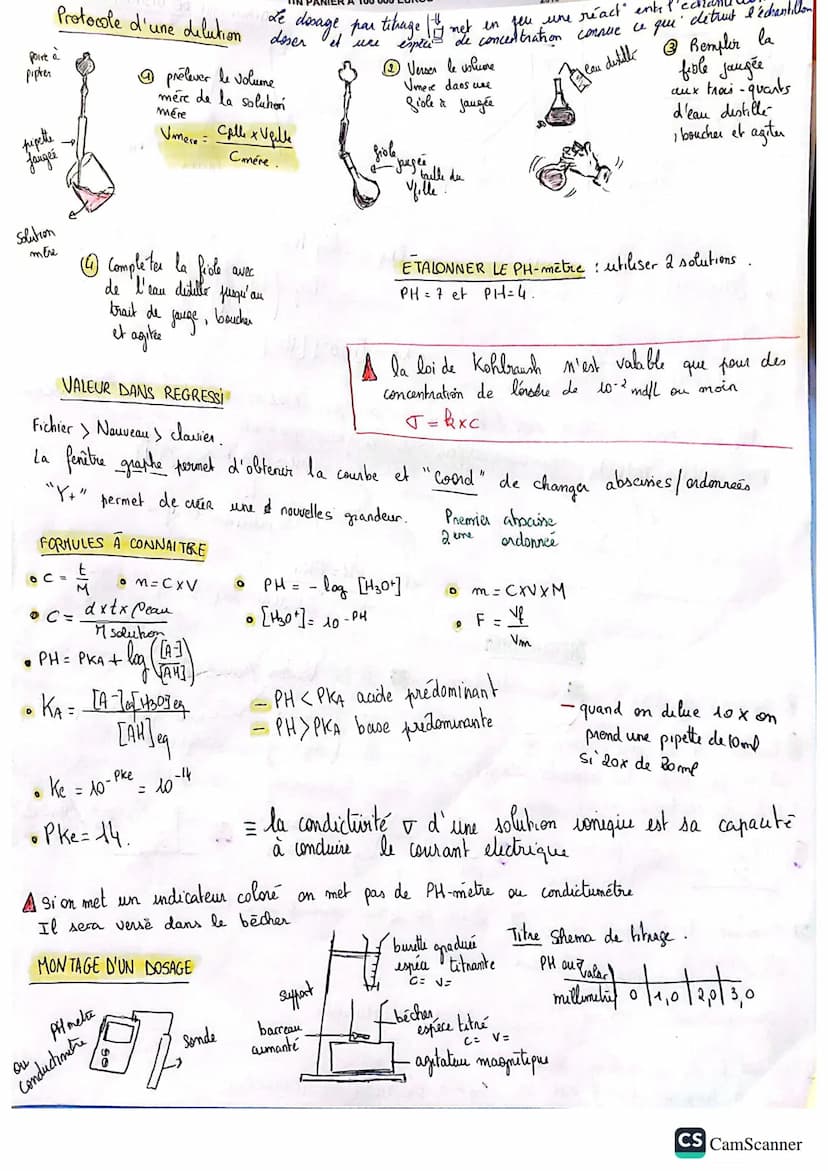 Protocole d'une dilution
Le dosage par titrage met en jeu une réact° entre l'échantillon
doser et une espèce de concentration connue ce qui détruit l'échantillon
poire à
pipter
① prélever le volume
mère de la solution
mère
Vmere = Cfille x Vfille / Cmère.
pipette
jaugée
solution
mère
② Verser le volume
Vmere dans une
fiole à jaugée
fiole
jaugée
taille du
Vfille.
eau distillé
③ Remplir la
fiole jaugée
aux trois-quarts
d'eau distillé
; boucher et agiter
④ Compléter la fiole avec
de l'eau distillé jusqu'au
trait de jauge, boucher
et agitée
ETALONNER LE PH-mètre : utiliser 2 solutions.
PH = 7 et PH=4.
la loi de Kohlraush n'est valable que pour des
concentration de l'ordre de 10⁻² mol/L ou moin
σ = k x c
VALEUR DANS REGRESSI
Fichier > Nouveau > clavier.
La fenêtre graphe permet d'obtenir la courbe et "Coord" de changer abscisses/ordonnées
"Y+" permet de créer une nouvelles grandeur.
Premier abscisse
2eme ordonnée
FORMULES À CONNAITRE
• C = t/M • n = C x V • PH = - log [H3O+] • m = C x V x M
• C = d x t x ρeau / M solution • [H3O+] = 10 -PH • F = Vf / Vm
• PH = PKA + log ([A-]/[AH])
• KA = [A-]eq[H3O]eq / [AH]eq
− PH < PKA acide prédominant
− PH > PKA base prédominante
− quand on delue 10 x on
prend une pipette de 10ml
si 20x de 20ml
• Ke = 10-PKe = 10-14
• PKe = 14.
≡ la condictivité σ d'une solution ionique est sa capacité
à conduire le courant electrique
Si on met un indicateur coloré on met pas de PH-mètre ou condictumétre
Il sera versé dans le bécher
MONTAGE D'UN DOSAGE
PH metre
ou
conductimètre
Sonde
support
barreau
aimanté
burette graduée
espèce titrante
C= V=
bécher
espèce titré
C= V=
agitateur magnétique
Titre Shema de titrage.
PH ou
millimétré 0 1,0 2,0 3,0
CS CamScanner